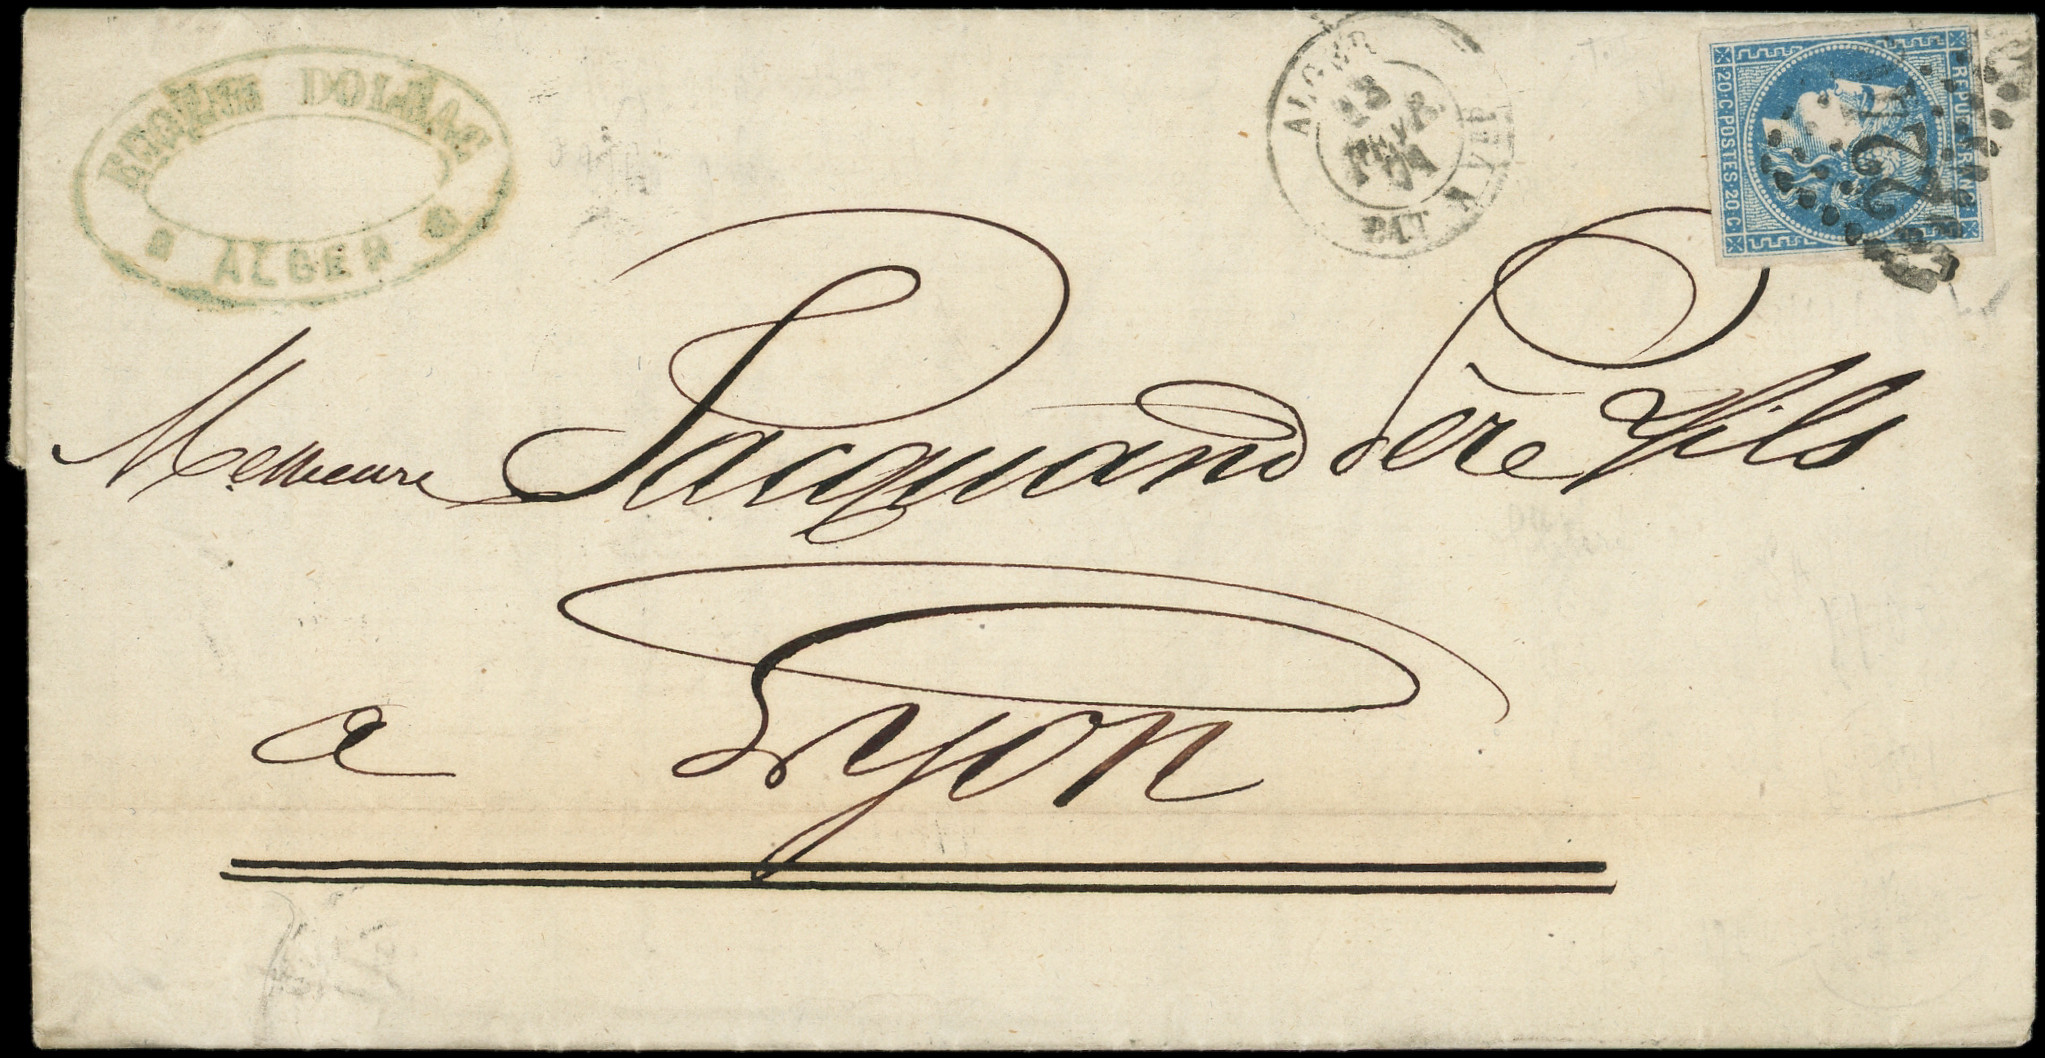 DOLÉAC
ALGER
ALGER
23
FEVR.
71
BAT
REPUB FRANC
20·C·POSTES·20·C·
Messieurs Jacquand Père & Fils
a Lyon